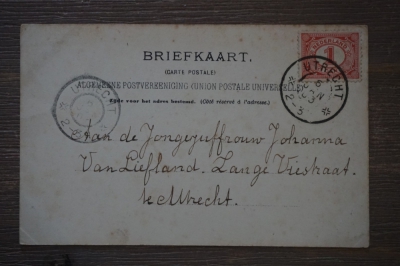 BRIEFKAART.
(CARTE POSTALE)
ALGEMEENE POSTVEREENIGING (UNION POSTALE UNIVERSELLE)
Zijde voor het adres bestemd. (Côté réservé à l'adresse.)
NEDERLAND
1
UTRECHT
Aan de Jongejuffrouw Johanna
Van Liefland. Lange Viestraat.
te Utrecht.